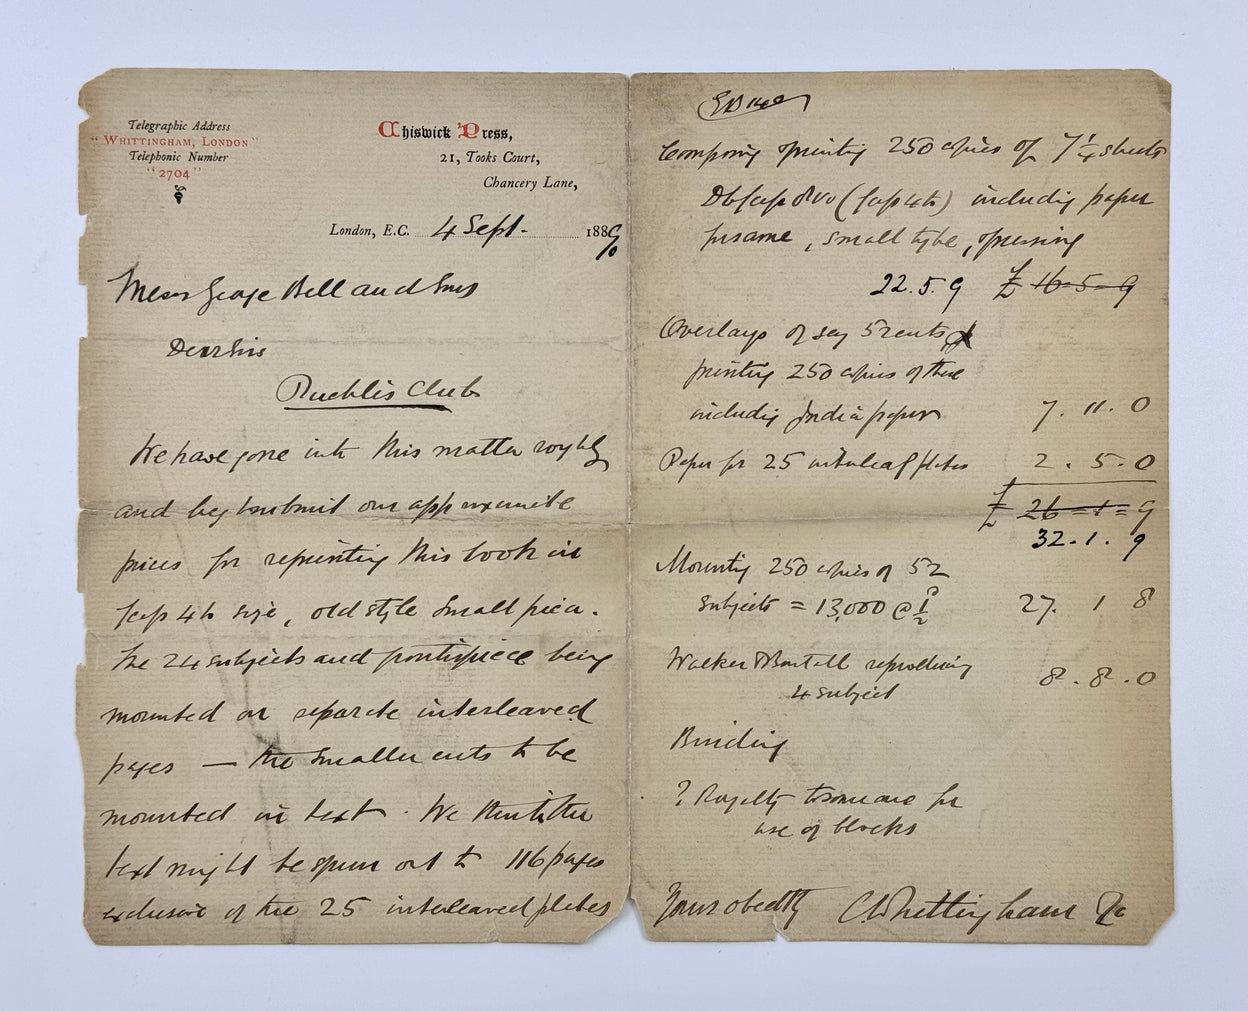 Telegraphic Address
"WHITTINGHAM, LONDON"
Telephonic Number
"2704"
Chiswick Press,
21, Tooks Court,
Chancery Lane,
London, E.C. 4 Sept. 1889/0
Messrs George Bell and Sons
Dear Sirs
Club
We have gone into this matter roughly
and beg to submit our approximate
prices for reprinting this book in
fcap 4to size, old style small pica.
The 24 subjects and frontispiece being
mounted on separate interleaved
pages — the smaller cuts to be
mounted in text. We think the
text might be spun out to 116 pages
exclusive of the 25 interleaved plates
Composing & printing 250 copies of 7 1/4 sheets
Db fcap 8vo (fcap 4to) including paper
for same, small type, & pressing
22.5.9 £ 16-5-9
Overlays of say 52 cuts &
printing 250 copies of these
including India paper 7.11.0
Paper for 25 interleaf plates 2.5.0
£ 26=1=9
32.1.9
Mounting 250 copies of 52
subjects = 13,000 @ 1/2 27.1.8
Walker & Boutall reproducing
4 subject 8.8.0
Binding
? Royalty to someone for
use of blocks
Yours obedtly C Whittingham & Co